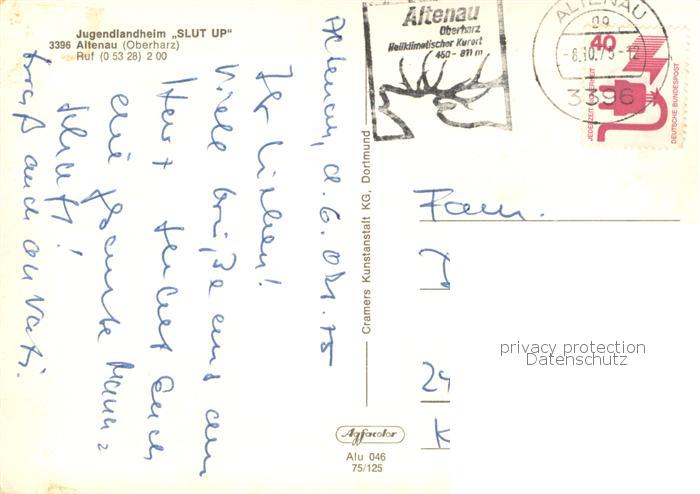 Jugendlandheim „SLUT UP"
3396 Altenau (Oberharz)
Ruf (0 53 28) 2 00
Altenau
Oberharz
Heilklimatischer Kurort
450-811 m
ALTENAU
-8.10.75-12
3396
40
JEDERZEIT SICHERHEIT
DEUTSCHE BUNDESPOST
Altenau, d. 6. Okt. 75
Ihr Lieben!
Viele Grüße aus dem
Harz sendet Euch
die gesamte Mann=
schaft!
Gruß auch an Vati.
Cramers Kunstanstalt KG, Dortmund
Fam.
24
K
privacy protection
Datenschutz
Agfacolor
Alu 046
75/125